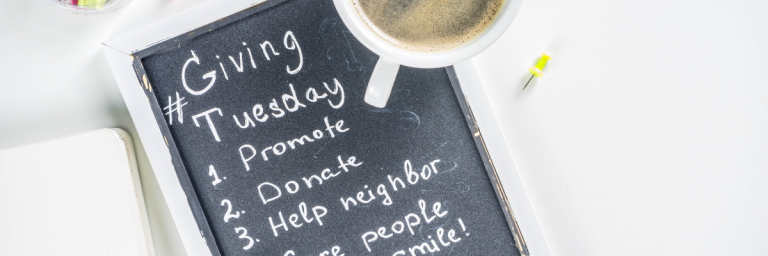 Giving
# Tuesday
1. Promote
2. Donate
3. Help neighbor
people
smile!